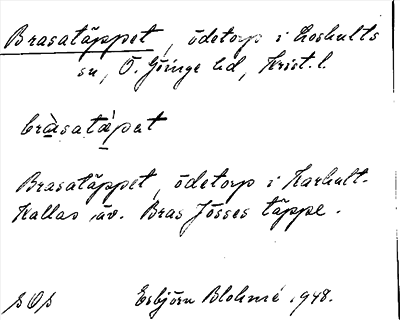 Brasatäppet, ödetorp i Loshults
sn, Ö. Göinge hd, Krist. l.
bràsatàpat
Brasatäppet, ödetorp i Karhult.
Kallas äv. Bras Jösses täppe.
Esbjörn Blohmé 1948.